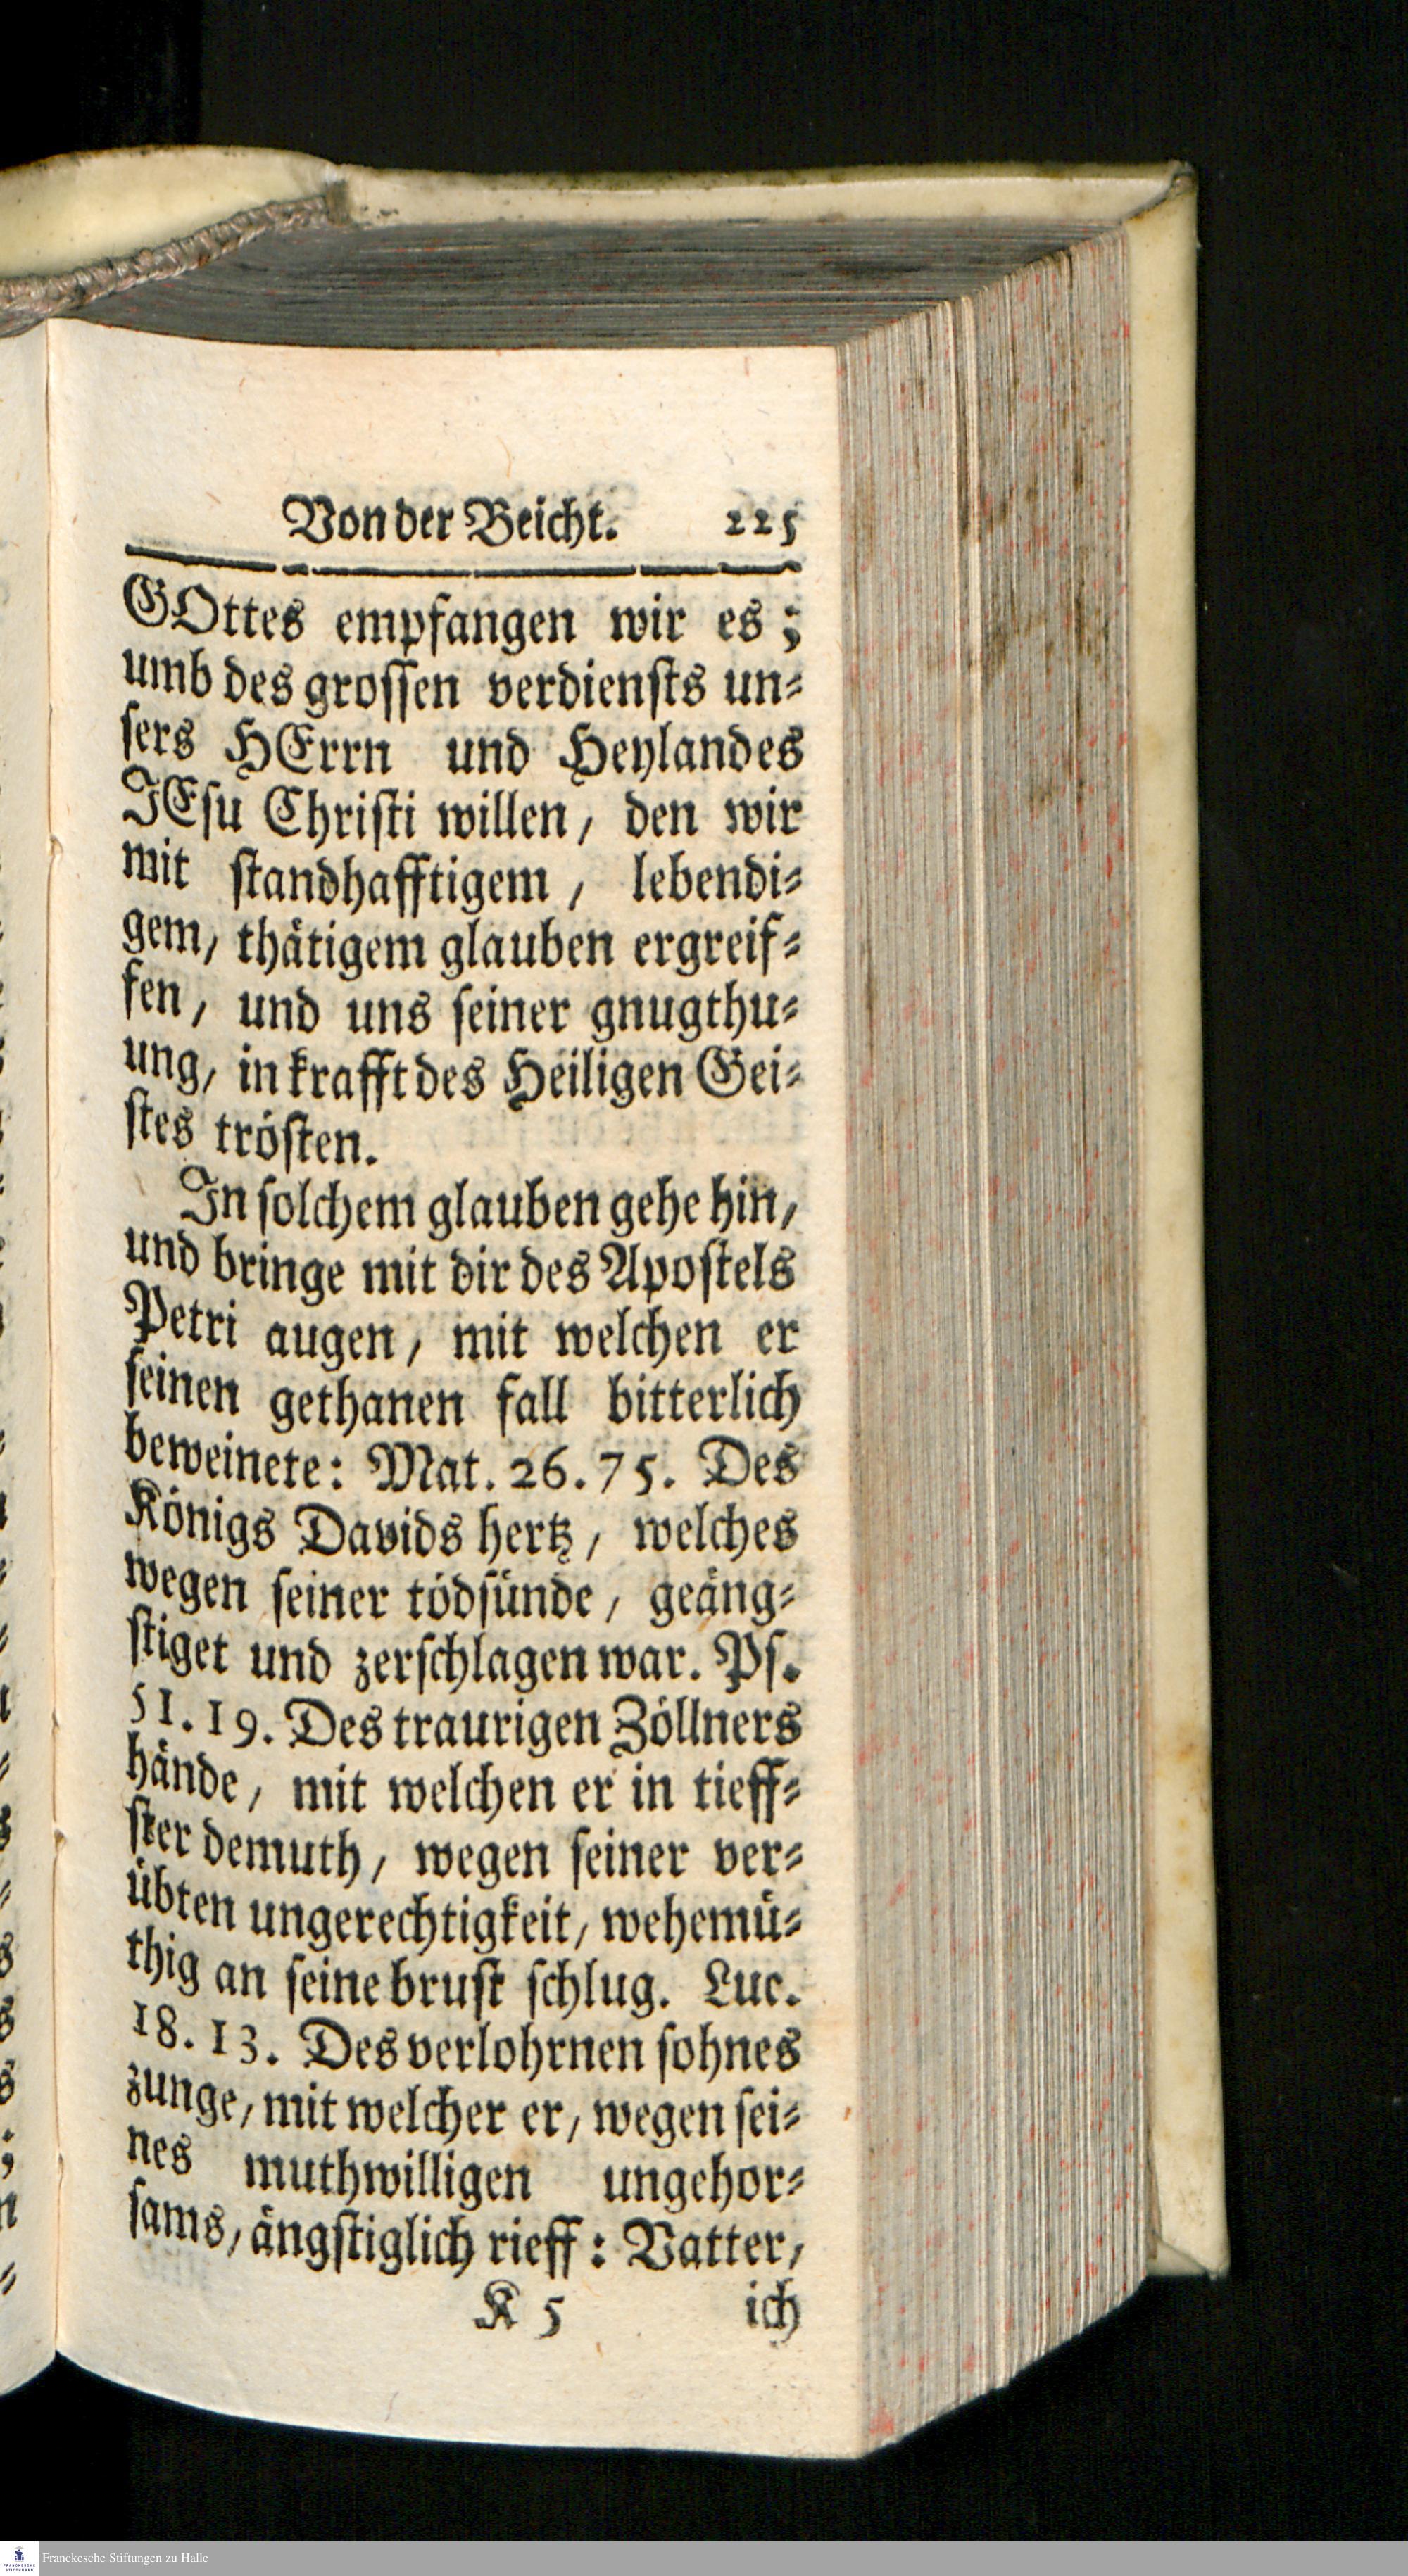 Von der Beicht. 225
GOttes empfangen wir es;
umb des grossen verdiensts un-
sers HErrn und Heylandes
JEsu Christi willen, den wir
mit standhafftigem, lebendi-
gem, thätigem glauben ergreif-
fen, und uns seiner gnugthu-
ung, in krafft des Heiligen Gei-
stes trösten.
In solchem glauben gehe hin,
und bringe mit dir des Apostels
Petri augen, mit welchen er
seinen gethanen fall bitterlich
beweinete: Mat. 26. 75. Des
Königs Davids hertz, welches
wegen seiner tödsünde, geäng-
stiget und zerschlagen war. Ps.
51. 19. Des traurigen Zöllners
hände, mit welchen er in tieff-
ster demuth, wegen seiner ver-
übten ungerechtigkeit, wehemü-
thig an seine brust schlug. Luc.
18. 13. Des verlohrnen sohnes
zunge, mit welcher er, wegen sei-
nes muthwilligen ungehor-
sams, ängstiglich rieff: Vatter,
K 5 ich
Franckesche Stiftungen zu Halle